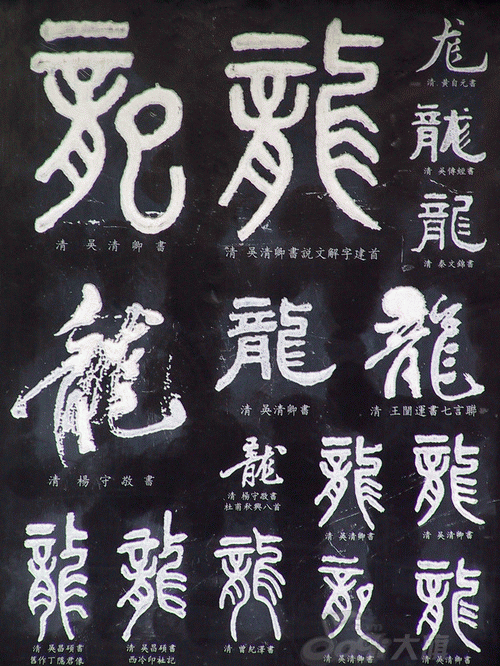 龍
清 吳清卿書
龍
清 吳清卿書説文解字建首
龙
清 黃自元書
龍
清 吳傳經書
龍
清 秦文錦書
龍
清 楊守敬書
龍
清 吳清卿書
龍
清 王闓運書七言聯
龍
清 楊守敬書
杜甫秋興八首
龍
清 吳清卿書
龍
清 吳清卿書
龍
清 吳昌碩書
舊作丁隱君像
龍
清 吳昌碩書
西泠印社記
龍
清 曾紀澤書
龍
清 吳清卿書
龍
清 吳清卿書